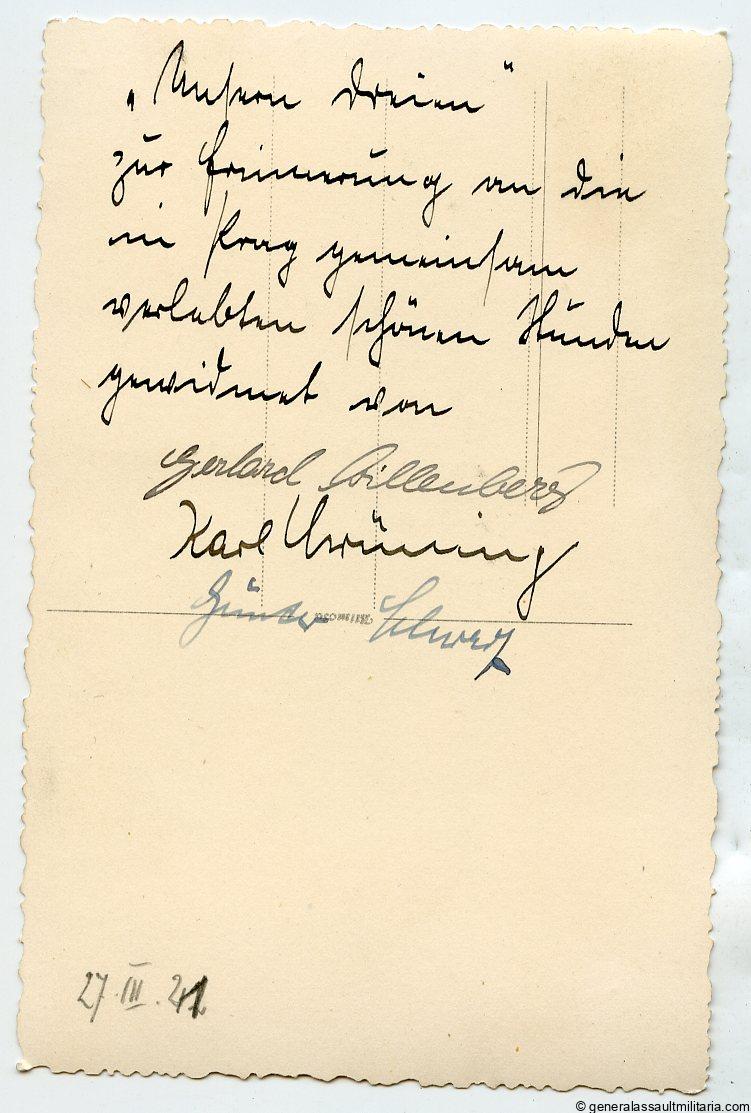 „Unsern Dreien"
zur Erinnerung an die
in Prag gemeinsam
verlebten schönen Stunden
gewidmet von
Gerhard Willenberg
Karl Grüning
Günter
27.III.41
© generalassaultmilitaria.com